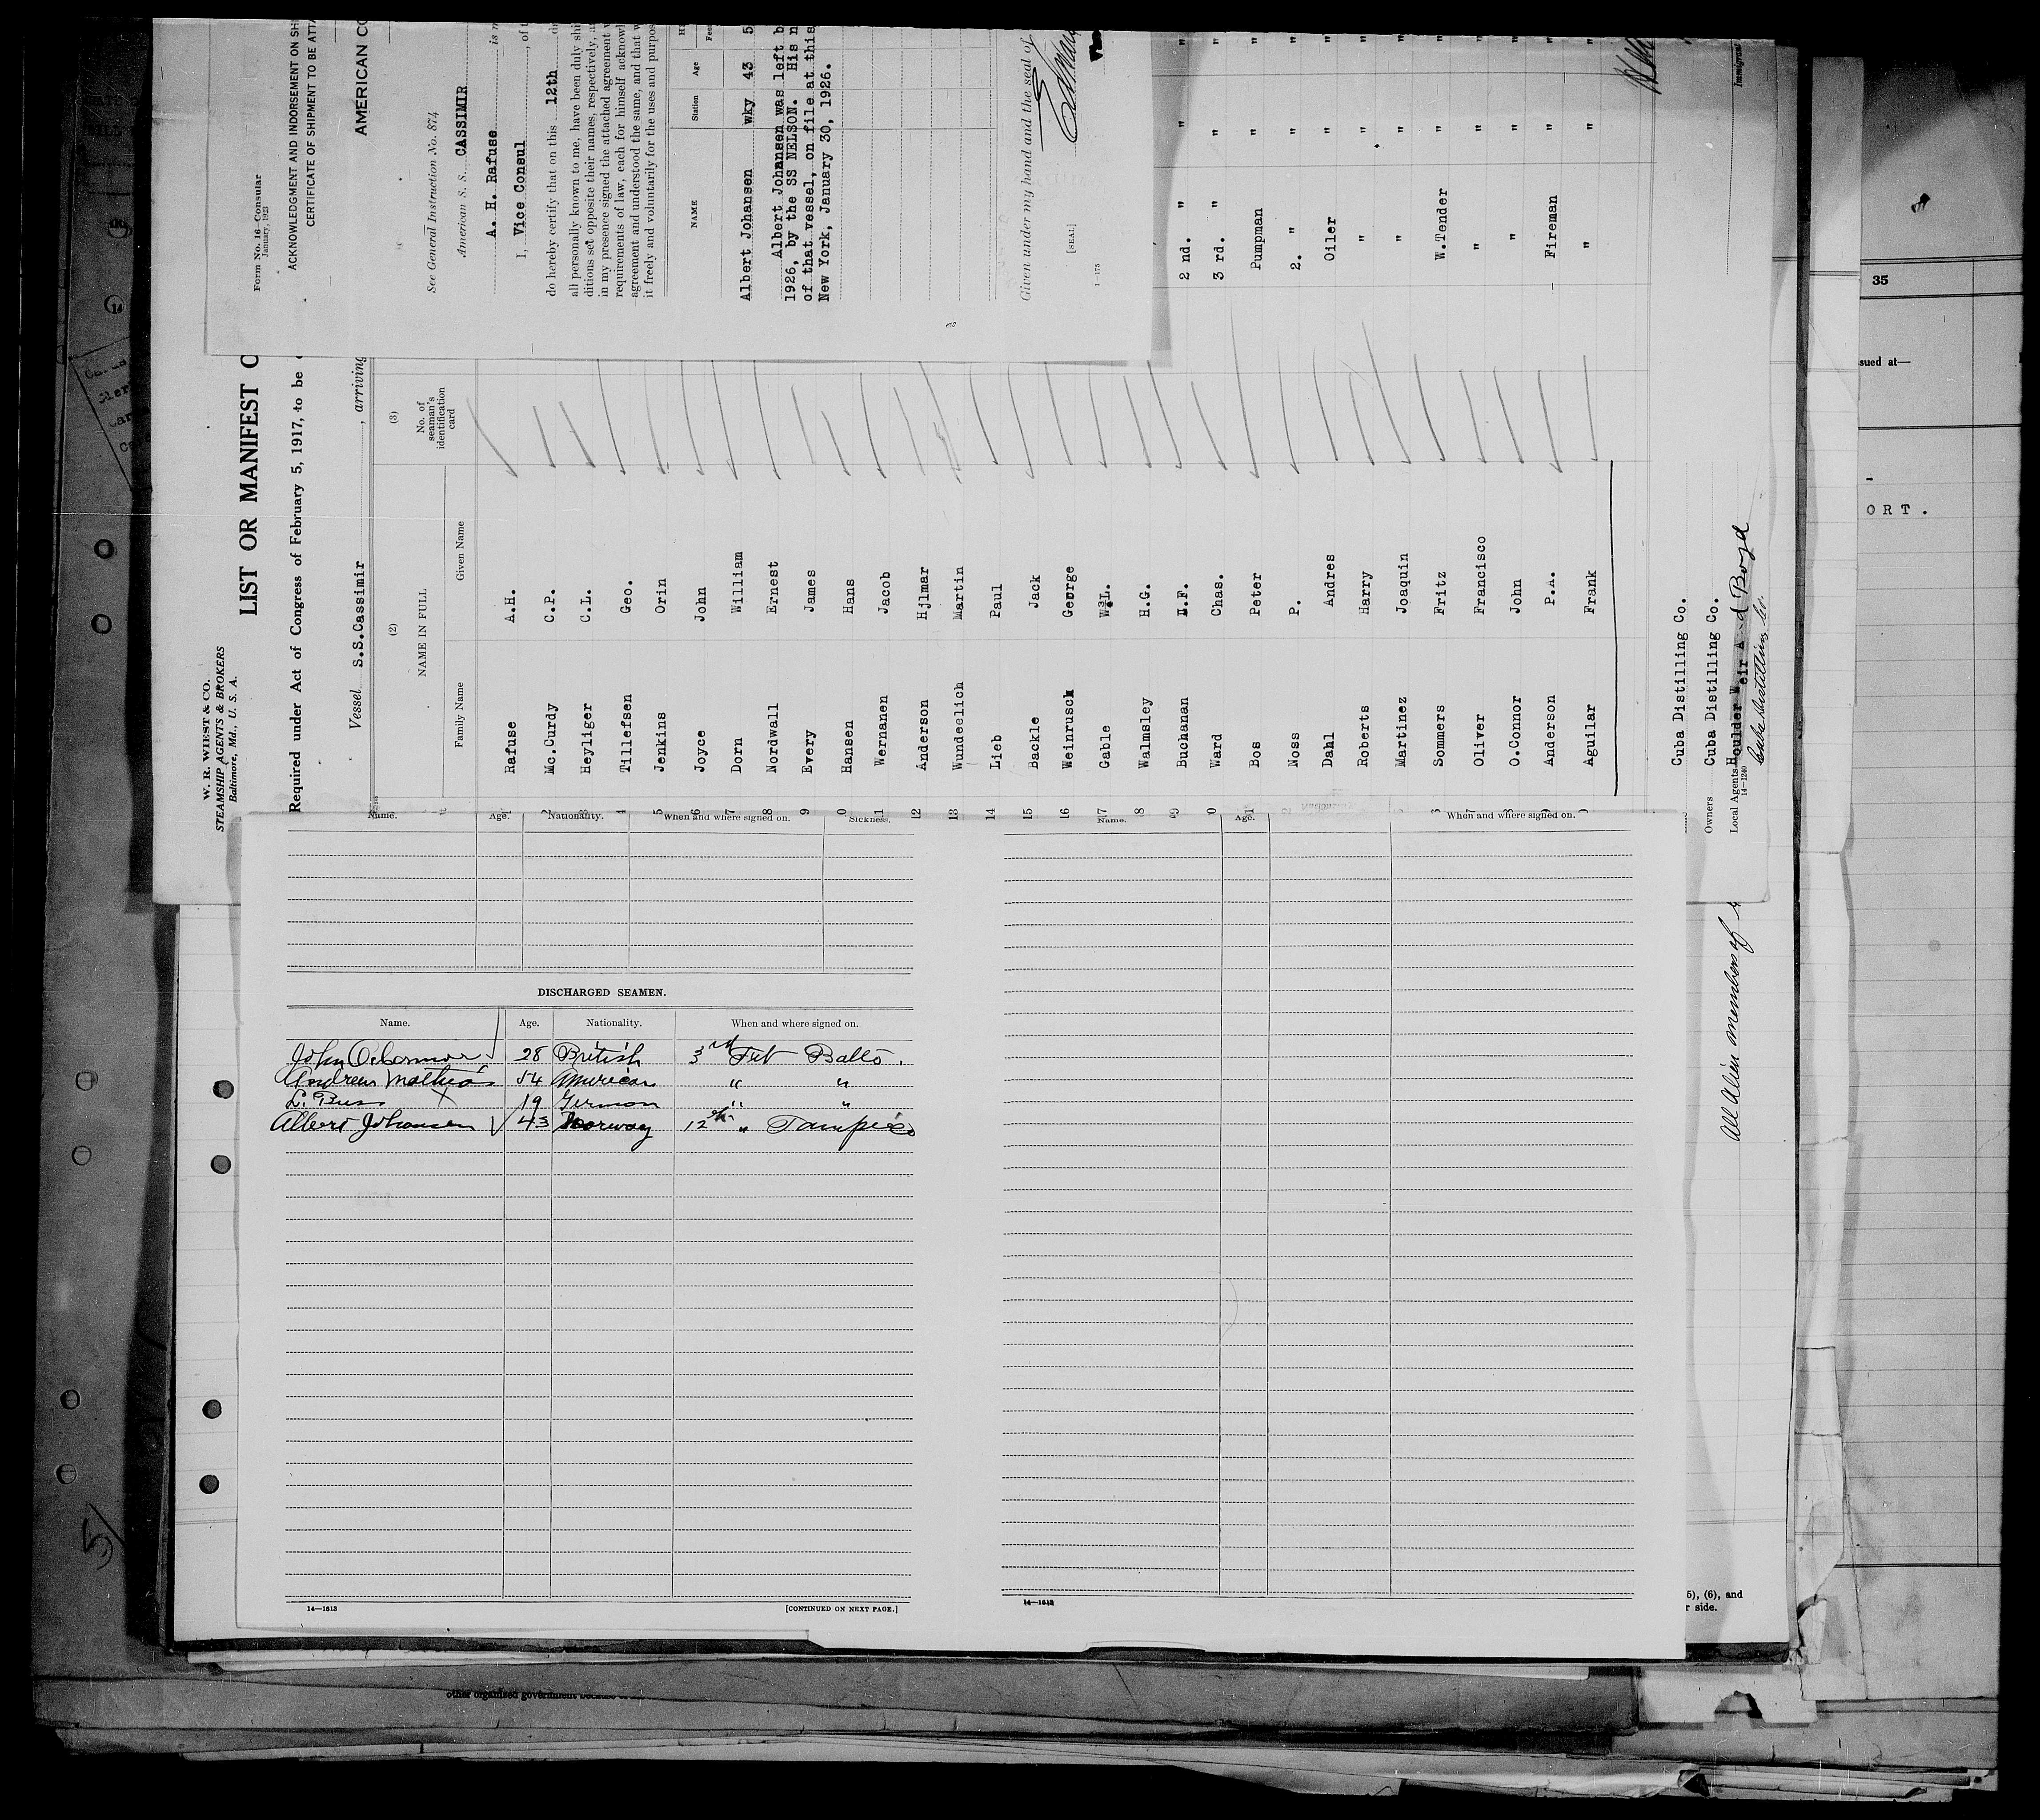 Form No. 16—Consular
January, 1923
ACKNOWLEDGMENT AND INDORSEMENT ON
CERTIFICATE OF SHIPMENT TO BE
AMERICAN
See General Instruction No. 874
American S. S. CASSIMIR
A. H. Rafuse is
I, Vice Consul, of
do hereby certify that on this 12th
all personally known to me, have been duly
ditions set opposite their names, respectively,
in my presence signed the attached agreement
requirements of law, each for himself
agreement and understood the same, and that
it freely and voluntarily for the uses and
NAME Station Age
Albert Johansen wky 43 5
Albert Johansen was left
1926, by the SS NELSON. His
of that vessel, on file at this
New York, January 30, 1926.
Given under my hand and the seal of
[SEAL]
1—175
W. R. WIEST & CO.
STEAMSHIP AGENTS & BROKERS
Baltimore, Md., U. S. A.
LIST OR MANIFEST
Required under Act of Congress of February 5, 1917, to be
Vessel S.S.Cassimir, arriving
(2) (3)
NAME IN FULL No. of seaman's identification card
Family Name Given Name
1 Rafuse A.H.
2 Mc.Curdy C.P.
3 Heyliger C.L.
4 Tillefsen Geo.
5 Jenkins Orin
6 Joyce John
7 Dorn William
8 Nordwall Ernest
9 Every James
0 Hansen Hans
11 Wernanen Jacob
12 Anderson Hjlmar
13 Wundeelich Martin
14 Lieb Paul
15 Backle Jack
16 Weinrusck George
17 Gable
8 Walmsley H.G.
9 Buchanan 2 nd. " "
0 Ward Chas. 3 rd. " " "
1 Bos Peter Pumpman " "
Noss P. 2. " " "
Dahl Andres Oiler " "
Roberts Harry " " "
Martinez Joaquin " " "
6 Sommers Fritz W.Tender " "
7 Oliver Francisco " " "
8 O.Connor John " " "
9 Anderson P.A. Fireman " "
Aguilar Frank " " "
Cuba Distilling Co.
Owners Cuba Distilling Co.
Local Agents Houlder Weir And Boyd
14—1240
Cuba Distilling Co.
All Alien members of
Name. Age. Nationality. When and where signed on. Sickness.
DISCHARGED SEAMEN.
Name. Age. Nationality. When and where signed on.
John Oconnor 28 British 3rd Feb Balto.
Andrew Mathias 54 American " "
L. Buss X 19 German " "
Albert Johansen 43 Norway 12th " Tampico
14—1613 [CONTINUED ON NEXT PAGE.]
Name. Age. When and where signed on.
14—1613
35
sued at—
ORT.
5), (6), and
r side.
other organized government because
51